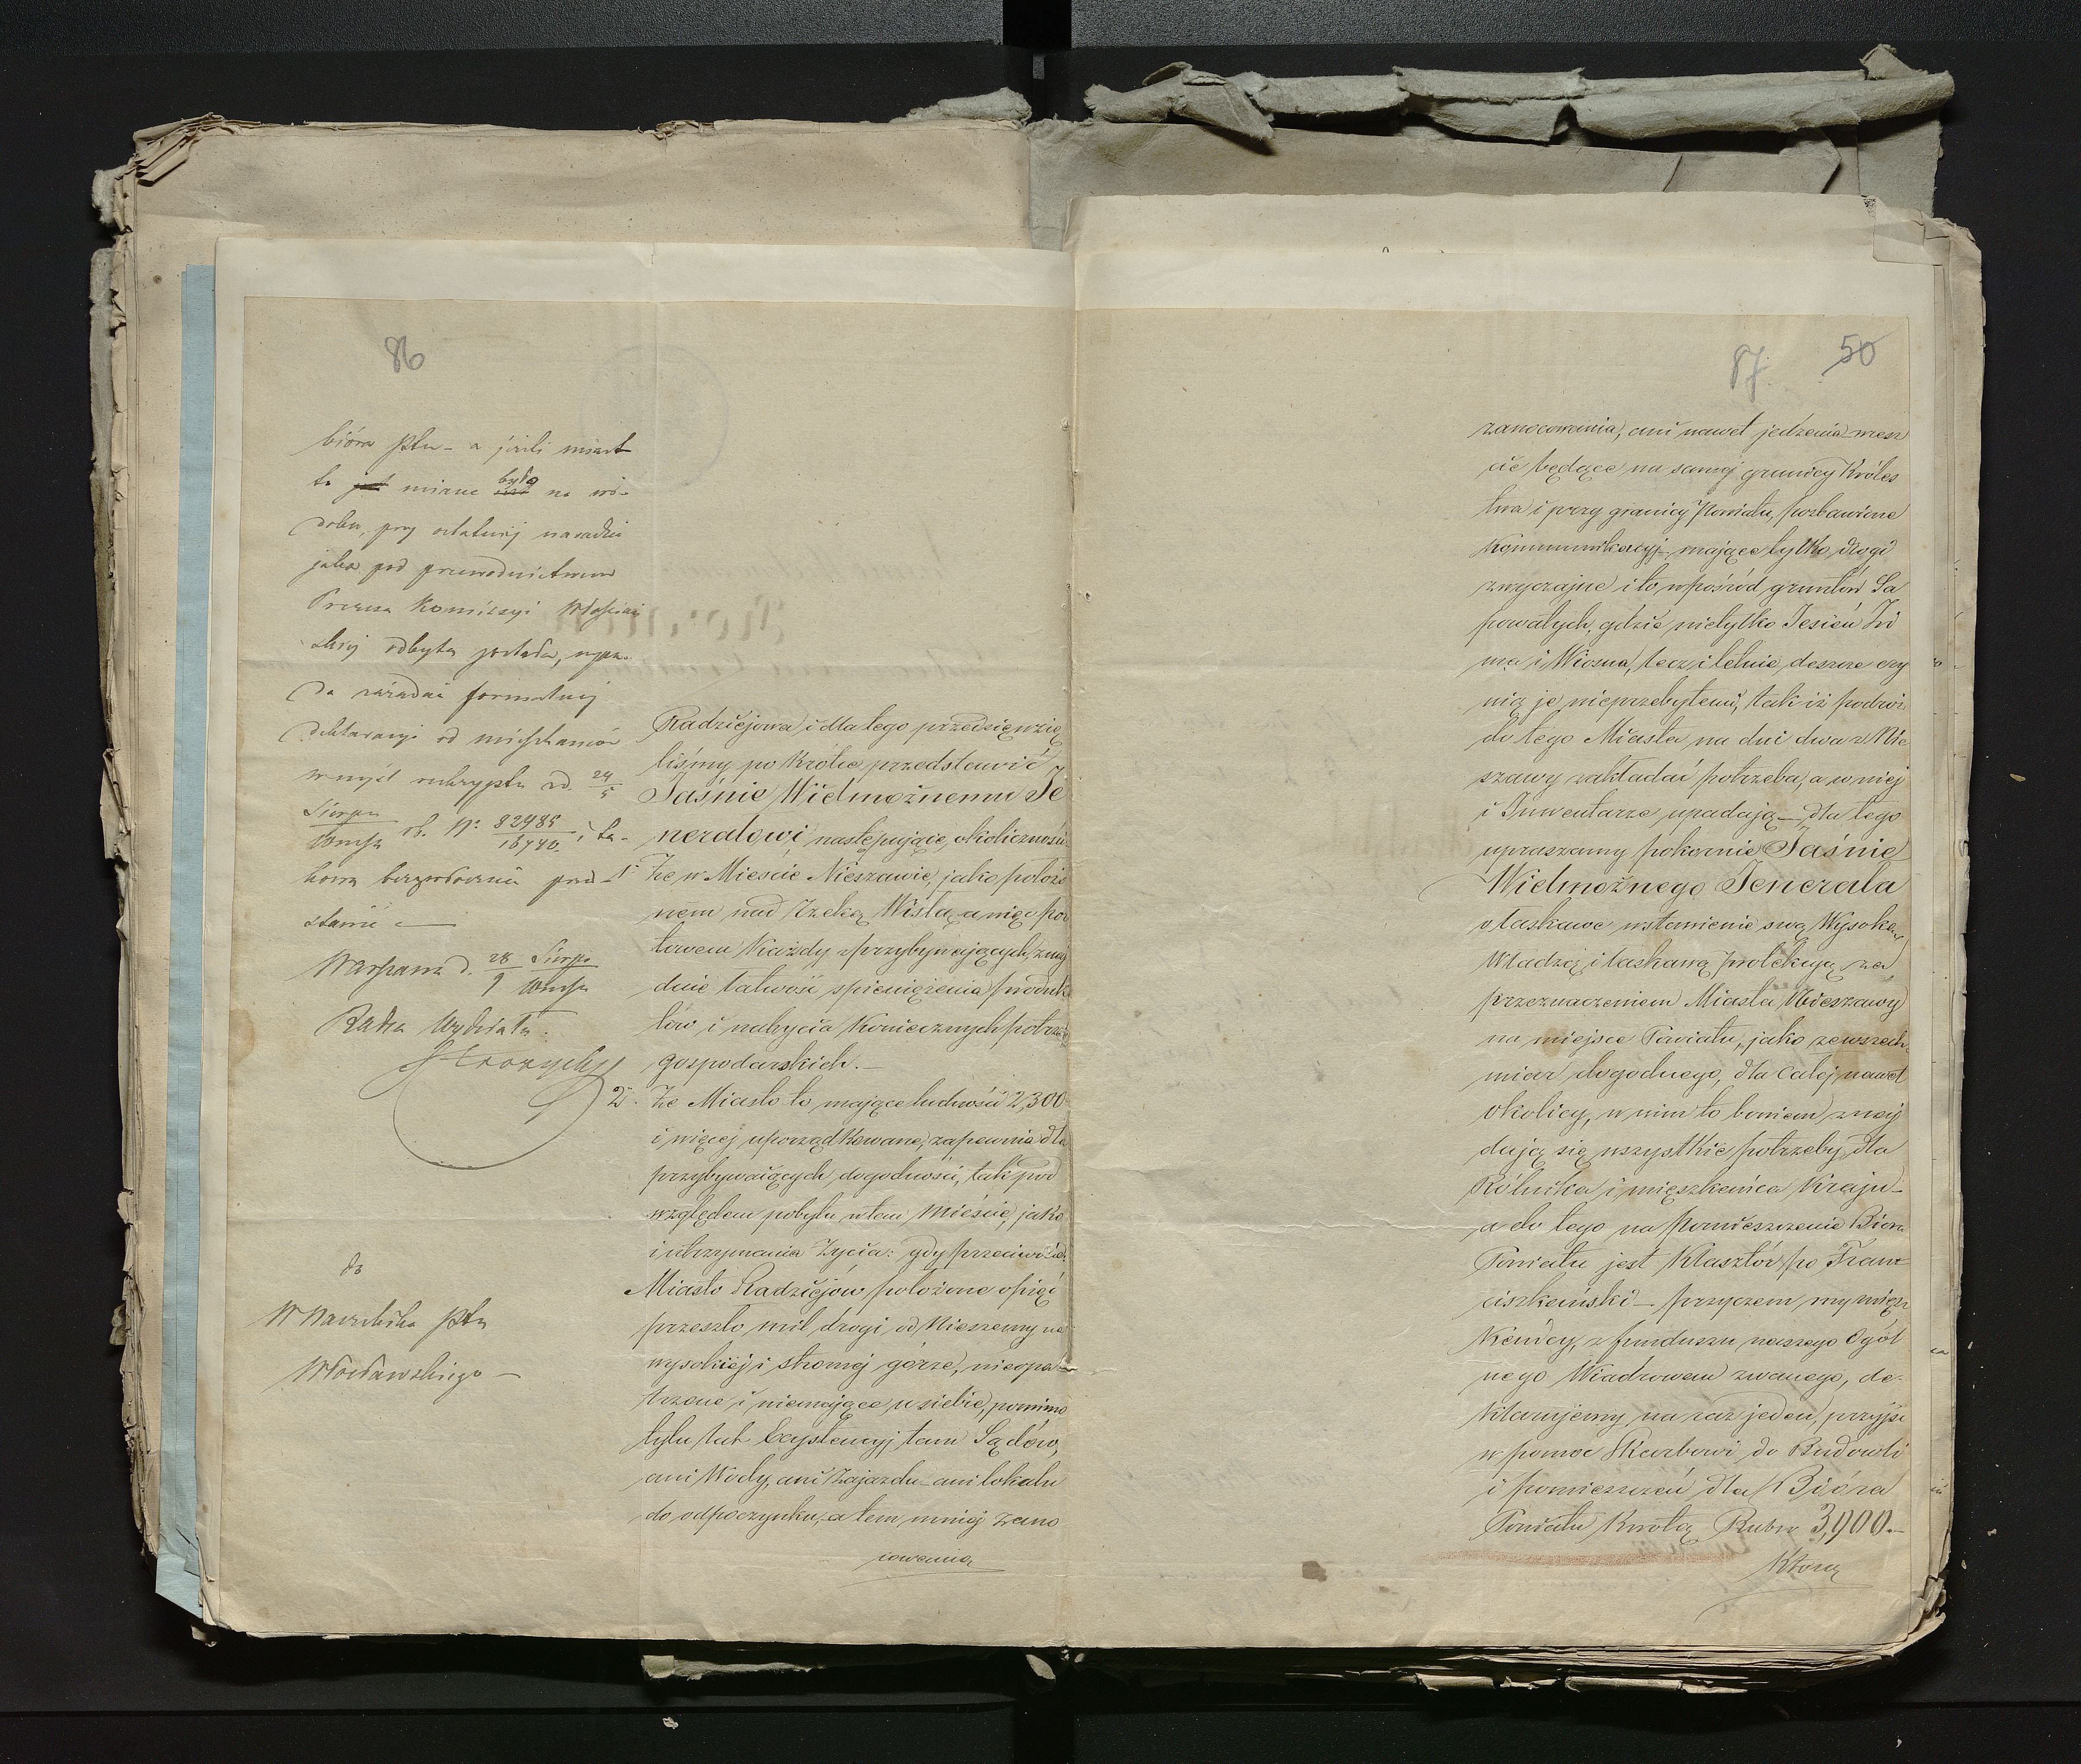 86
bióra Ptu – a jeżeli miast
to jest miane było na wi-
doku, przy ostatniej naradzie
jaka pod przewodnictwem
Prezesa Komissyi Włościań
skiej odbytą została, wypa-
da zażądać formalnej
deklaracyi od mieszkańców
w myśl reskryptu z d. 24/5
Sierpn/Wrześ rb. N: 82985/16740 i ta-
kową bezzwłocznie przed-
stawić –
Warszawa d. 28/9 Sierp/Wrześ
Radca Wydziału
do
W Naczelnika Ptu
Włocławskiego –
Radziejowa i dla tego przedsięwzię
liśmy pokrótce przedstawić
Jaśnie Wielmożnemu Je
nerałowi, następujące okoliczności
1o Że w Mieście Nieszawie, jako położo
nem nad rzeką Wisłą a więc por
towem każdy z przybywających, znaj
duje łatwość spieniężenia produk
tów i nabycia koniecznych potrzeb
gospodarskich. –
2o Że Miasto to, mające ludności 2,300
i więcej uporządkowane, zapewnia dla
przybywających dogodności, tak pod
względem pobytu w tem Mieście, jako
i utrzymania życia: gdy przeciwnie
Miasto Radziejów położone o pięć
przeszło mil drogi od Nieszawy na
wysokiéj i stromej górze, nieopa-
trzone i niemające u siebie, pomimo
tylu lat Exystencyj tam Sądów,
ani Wody, ani Zajazdu – ani lokalu
do odpoczynku, a tem mniej zano
cowania
87. 50
zanocowania, ani nawet jedzenia – wresz
cie będące na samej granicy Króles
twa i przy granicy Powiatu, pozbawione
Kommunikacyj – mające tylko drogi
zwyczajne i to wpośród gruntów Sa
powatych, gdzie nietylko Jesień Zi
ma i Wiosna, lecz i letnie deszcze czy
nią je nieprzebytemi, tak iż podróż
do tego Miasta na dni dwa z Nie
szawy zakładać potrzeba, a w niej
i Inwentarze upadają – dla tego
upraszamy pokornie Jaśnie
Wielmożnego Jenerała
o łaskawe wstawienie swą Wysoką
Władzą i łaskawą protekcyą za
przeznaczeniem Miasta Nieszawy
na miejsce Powiatu, jako ze wszech
miar dogodnego, dla całej nawet
okolicy, w nim to bowiem znaj
dują się wszystkie potrzeby dla
Rólnika i mięszkańca Kraju –
a do tego na pomieszczenie Bióra
Powiatu jest Klasztór po Fran
ciszkański – przyczem my miesz
kańcy, z funduszu naszego Ogól
nego Wiadrowem zwanego, de-
klarujemy na raz jeden, przyjść
w pomoc Skarbowi do Budowli
i pomieszczeń dla Bióra
Powiatu kwotą Rubsr 3,900. –
Którą